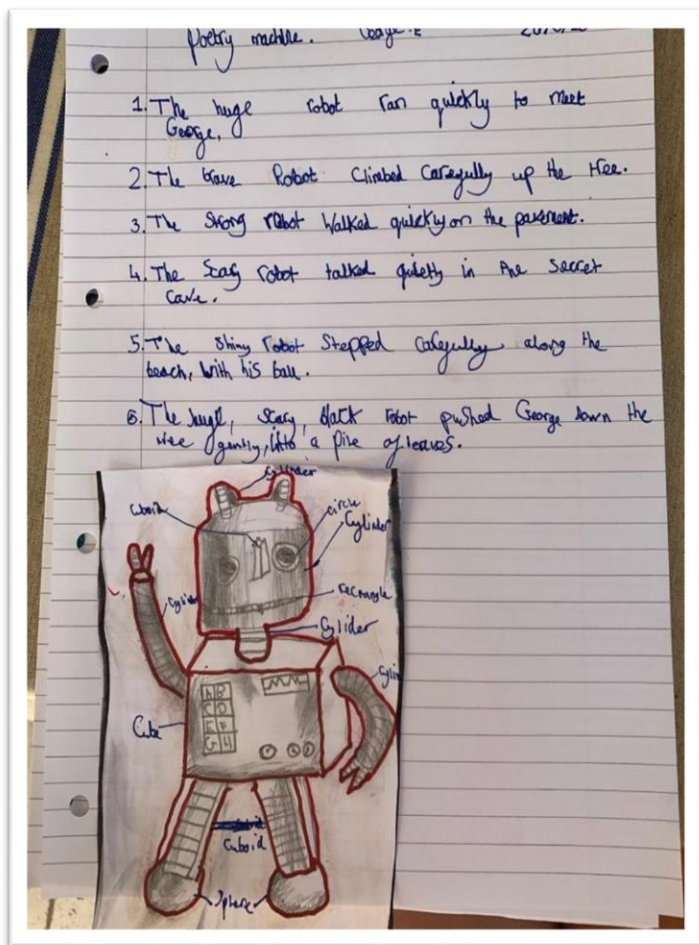 Poetry machine.
1. The huge robot ran quickly to meet
George,
2. The brave Robot Climbed Carefully up the tree.
3. The Strong robot Walked quickly on the pavement.
4. The Scary robot talked quietly in the Secret
Cave.
5. The Shiny robot Stepped Carefully along the
beach, with his ball.
6. The huge, scary, black robot pushed George down the
tree gently, into a pile of leaves.
Cylinder
Cuboid
circle
Cylinder
Cylin
rectangle
Cylider
Cylin
A B
C D
E F
G H
Cube
Cuboid
Sphere